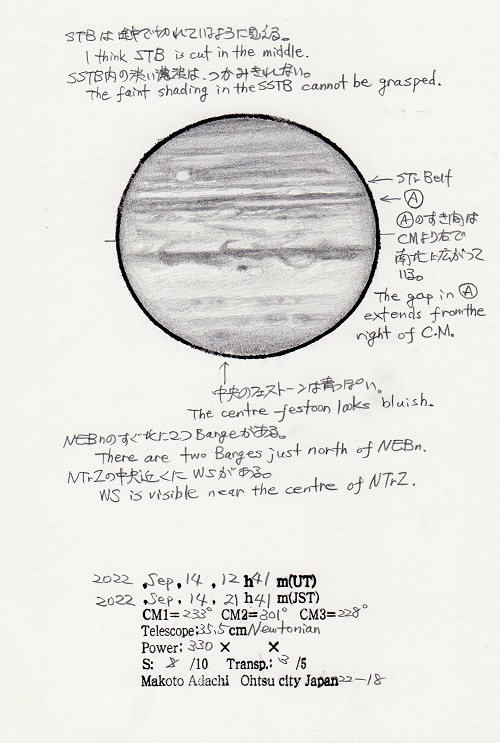 STBは途中で切れているように見える。
I think STB is cut in the middle.
SSTB内の淡い濃淡は、つかみきれない。
The faint shading in the SSTB cannot be grasped.
STr Belt
Ⓐ
Ⓐのすき間は
CMより右で
南北に広がって
いる。
The gap in Ⓐ
extends from the
right of C.M.
中央のフェストーンは青っぽい。
The centre-festoon looks bluish.
NEBnのすぐ北に2つBargeがある。
There are two Barges just north of NEBn.
NTrZの中央近くにWSがある。
WS is visible near the centre of NTrZ.
2022 , Sep, 14 , 12 h 41 m(UT)
2022 , Sep, 14 , 21 h 41 m(JST)
CM1= 233° CM2= 301° CM3= 228°
Telescope: 35.5 cm/Newtonian
Power: 330 × ×
S: 8 /10 Transp.: 3 /5
Makoto Adachi Ohtsu city Japan 22-18